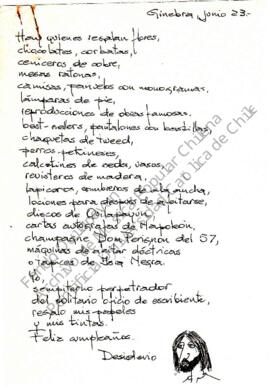 Ginebra, Junio 23.-
Hay quienes regalan flores,
chocolates, corbatas,
ceniceros de cobre,
mesas ratonas,
camisas, pañuelos con monogramas,
lámparas de pie,
reproducciones de obras famosas,
best-sellers, pantalones con bastillas,
chaquetas de tweed,
perros pekineses,
calcetines de seda, vasos,
revisteros de madera,
lapiceros, sombreros de ala ancha,
lociones para después de afeitarse,
discos de Quilapayún,
cartas autógrafas de Napoleón,
champagne Dom Perignon del 57,
máquinas de afeitar eléctricas
o tapices de Isla Negra.
Yo,
sempiterno perpetrador
del solitario oficio de escribiente,
regalo mis papeles
y mis tintas.
Feliz cumpleaños.
Desiderio